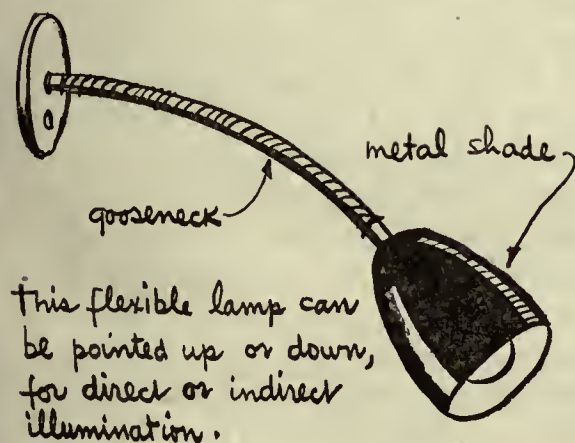 metal shade
gooseneck
This flexible lamp can
be pointed up or down,
for direct or indirect
illumination.